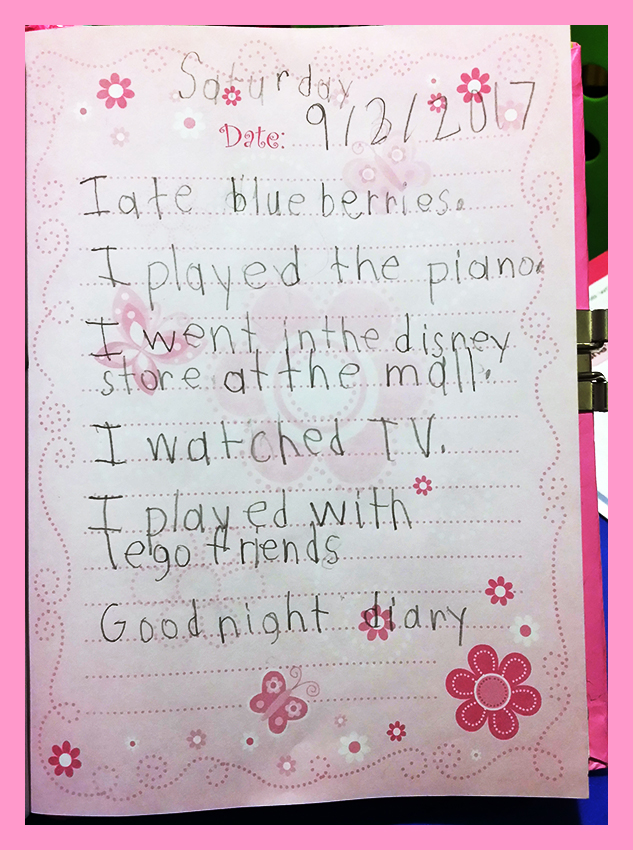 Saturday
Date: 9/3/2017
I ate blueberries.
I played the piano.
I went in the disney
store at the mall.
I watched TV.
I played with
lego friends
Good night diary